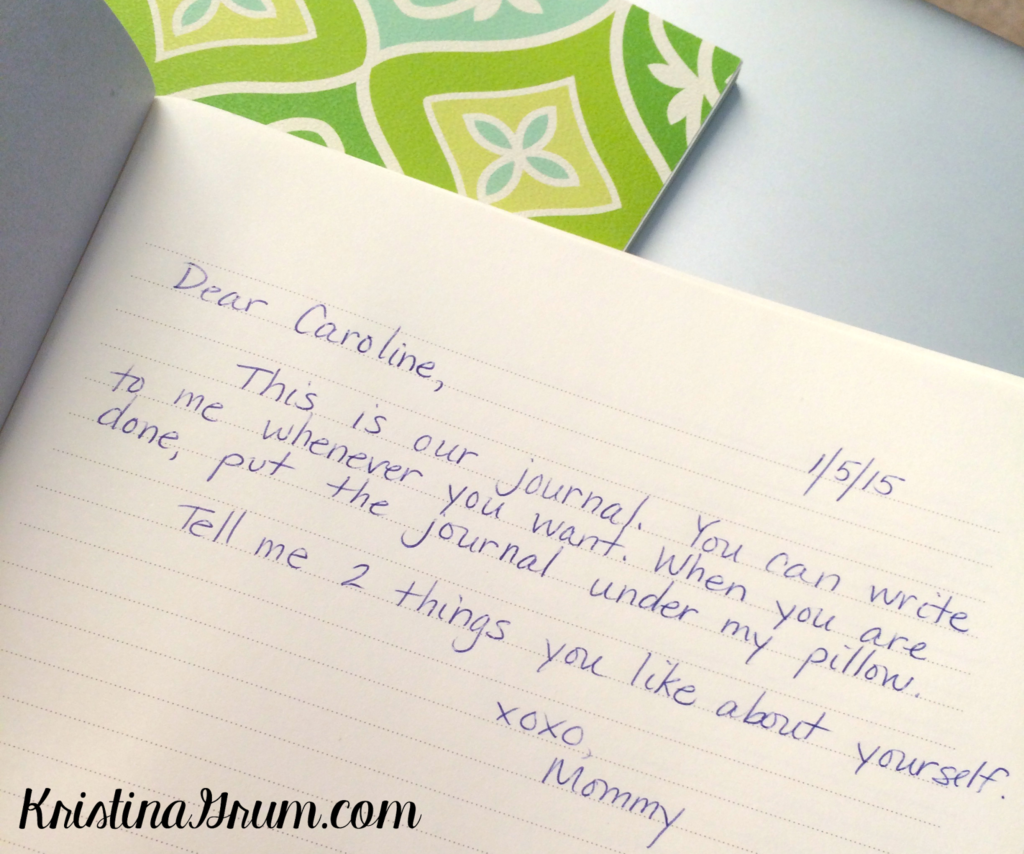 1/5/15
Dear Caroline,
This is our journal. You can write
to me whenever you want. When you are
done, put the journal under my pillow.
Tell me 2 things you like about yourself.
xoxo,
Mommy
KristinaGrum.com